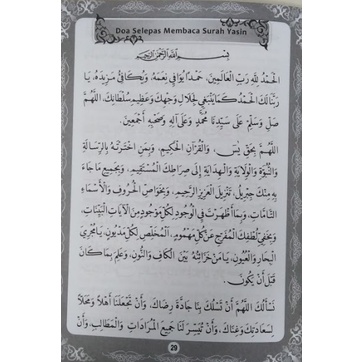 Doa Selepas Membaca Surah Yasin
بِسْمِ اللهِ الرَّحْمٰنِ الرَّحِيْمِ
الْحَمْدُ لِلّٰهِ رَبِّ الْعَالَمِيْنَ، حَمْدًا يُوَافِي نِعَمَهُ، وَيُكَافِئُ مَزِيْدَهُ، يَا
رَبَّنَا لَكَ الْحَمْدُ كَمَا يَنْبَغِي لِجَلَالِ وَجْهِكَ وَعَظِيْمِ سُلْطَانِكَ. اَللّٰهُمَّ
صَلِّ وَسَلِّمْ عَلَى سَيِّدِنَا مُحَمَّدٍ وَعَلَى آلِهِ وَصَحْبِهِ أَجْمَعِيْنَ.
اَللّٰهُمَّ بِحَقِّ يٰسٓ، وَالْقُرْآنِ الْحَكِيْمِ، وَبِمَنِ اخْتَرْتَهُ بِالرِّسَالَةِ
وَالنُّبُوَّةِ وَالْوِلَايَةِ وَالْهِدَايَةِ إِلَى صِرَاطِكَ الْمُسْتَقِيْمِ، وَبِجَمِيْعِ مَا جَاءَ
بِهِ مِنْكَ جِبْرِيْلُ، تَنْزِيْلَ الْعَزِيْزِ الرَّحِيْمِ، وَبِخَوَاصِّ الْحُرُوْفِ وَالْأَسْمَاءِ
التَّامَّاتِ، وَبِمَا أَظْهَرْتَ فِي الْوُجُوْدِ لِكُلِّ مَوْجُوْدٍ مِنَ الْآيَاتِ الْبَيِّنَاتِ،
وَبِخَفِيِّ لُطْفِكَ الْمُفَرِّجِ عَنْ كُلِّ مَهْمُوْمٍ، الْمُخَلِّصِ لِكُلِّ مَدْيُوْنٍ، يَا مُجْرِيَ
الْبِحَارِ وَالْعُيُوْنِ، يَا مَنْ خَزَائِنُهُ بَيْنَ الْكَافِ وَالنُّوْنِ، وَعَلِمَ بِمَا كَانَ
قَبْلَ أَنْ يَكُوْنَ.
نَسْأَلُكَ اللّٰهُمَّ أَنْ تَسْلُكَ بِنَا جَادَّةَ رِضَاكَ، وَأَنْ تَجْعَلَنَا أَهْلًا وَمَحَلًّا
لِسَعَادَتِكَ وَغِنَاكَ، وَأَنْ تُيَسِّرَ لَنَا جَمِيْعَ الْمُرَادَاتِ وَالْمَطَالِبِ، وَأَنْ
29